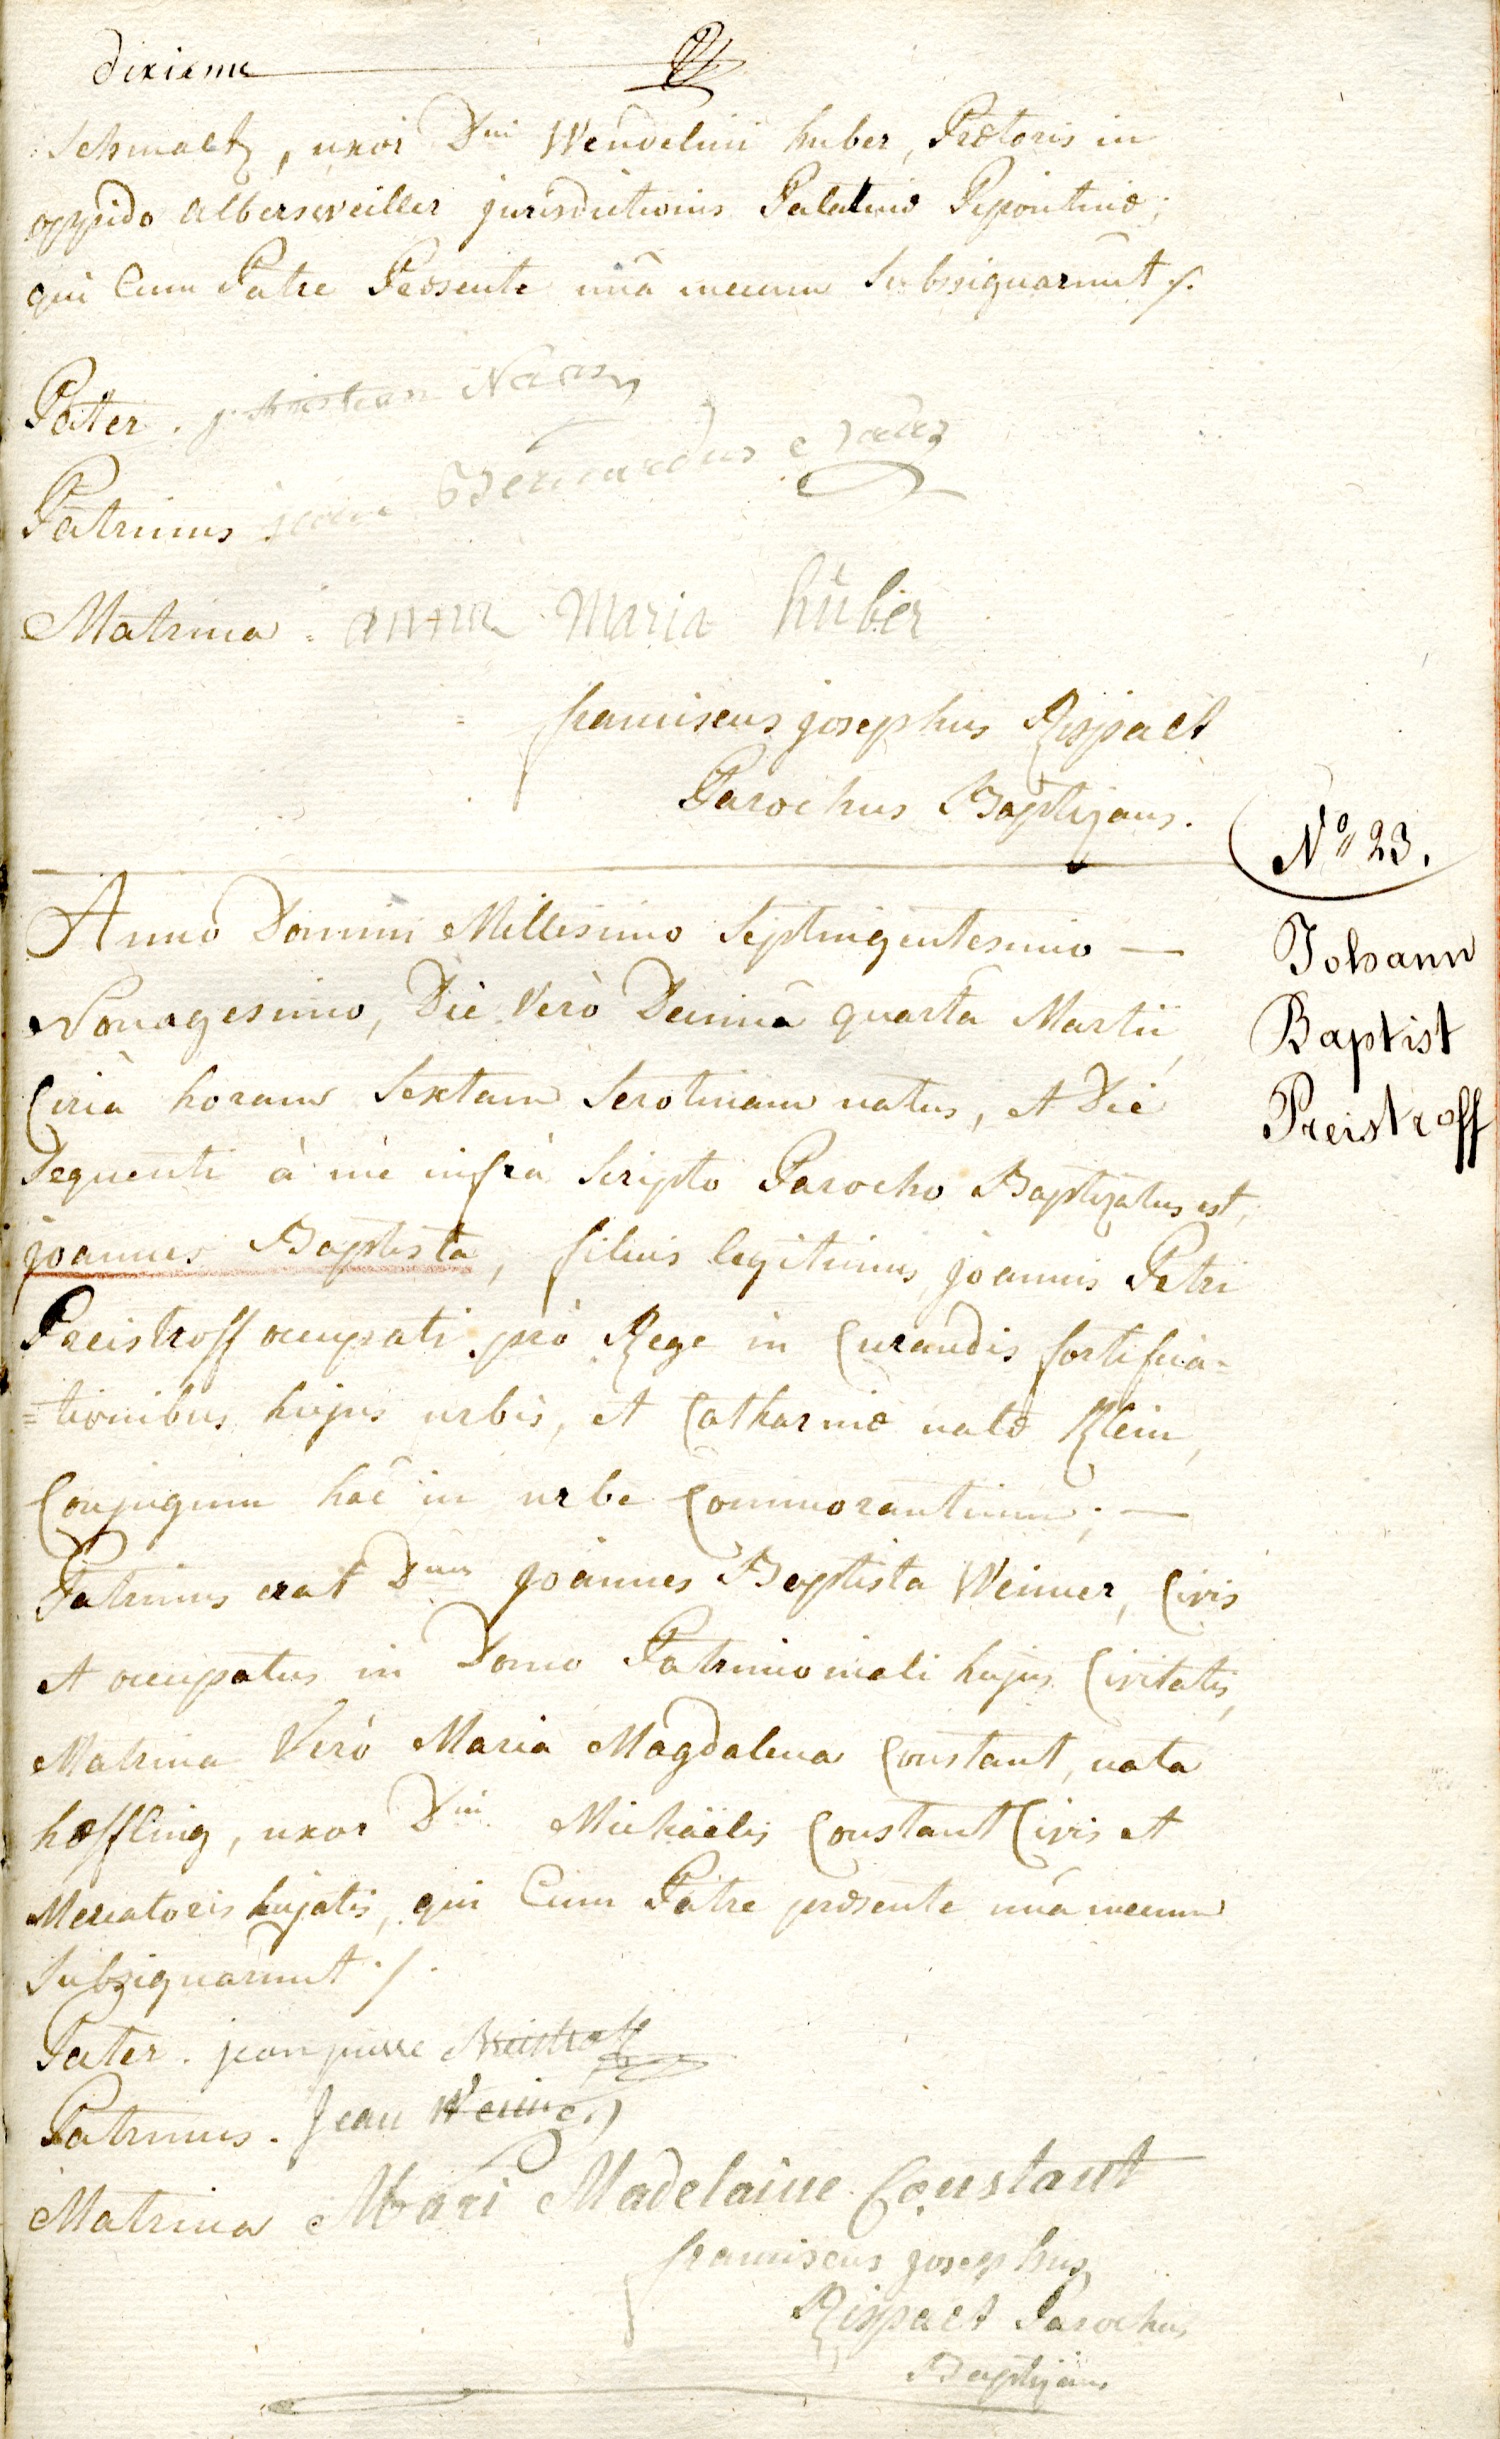 dixieme
Schmaltz, uxor Dni Wendelini huber, Prætoris in
oppido Albersweiller jurisdictionis Palatino Bipontinæ;
qui Cum Patre Præsente unâ mecum Subsignarunt /.
Pater.
Patrinus Bernardus
Matrina: anna Maria hüber
franciscus josephus Rispalt
Parochus Baptizans.
Nº 23.
Johann
Baptist
Preistroff
Anno Domini Millesimo Septingentesimo —
Nonagesimo, Die Verò Decimâ quartâ Martii,
Circà horam Sextam Serotinam natus, et Die
Sequenti à me infrà Scripto Parocho Baptizatus est,
joannes Baptista, filius legitimus, joannis Petri
Preistroff occupati pro Rege in Curandis fortifica=
=tionibus hujus urbis, et Catharinæ natæ Klein,
Conjugum hâc in urbe Commorantium; —
Patrinus erat Dnus joannes Baptista Weimer, Civis
et occupatus in Domo Patrimoniali hujus Civitatis,
Matrina Verò Maria Magdalena Constant, nata
hœffling, uxor Dni Michaëlis Constant Civis et
Mercatoris hujatis, qui Cum Patre præsente unâ mecum
Subsignarunt ./.
Pater. jean pierre Preistroff
Patrinus. Jean Weimer
Matrina Mari Madelaine Constant
franciscus josephus
Rispalt Parochus
Baptizans